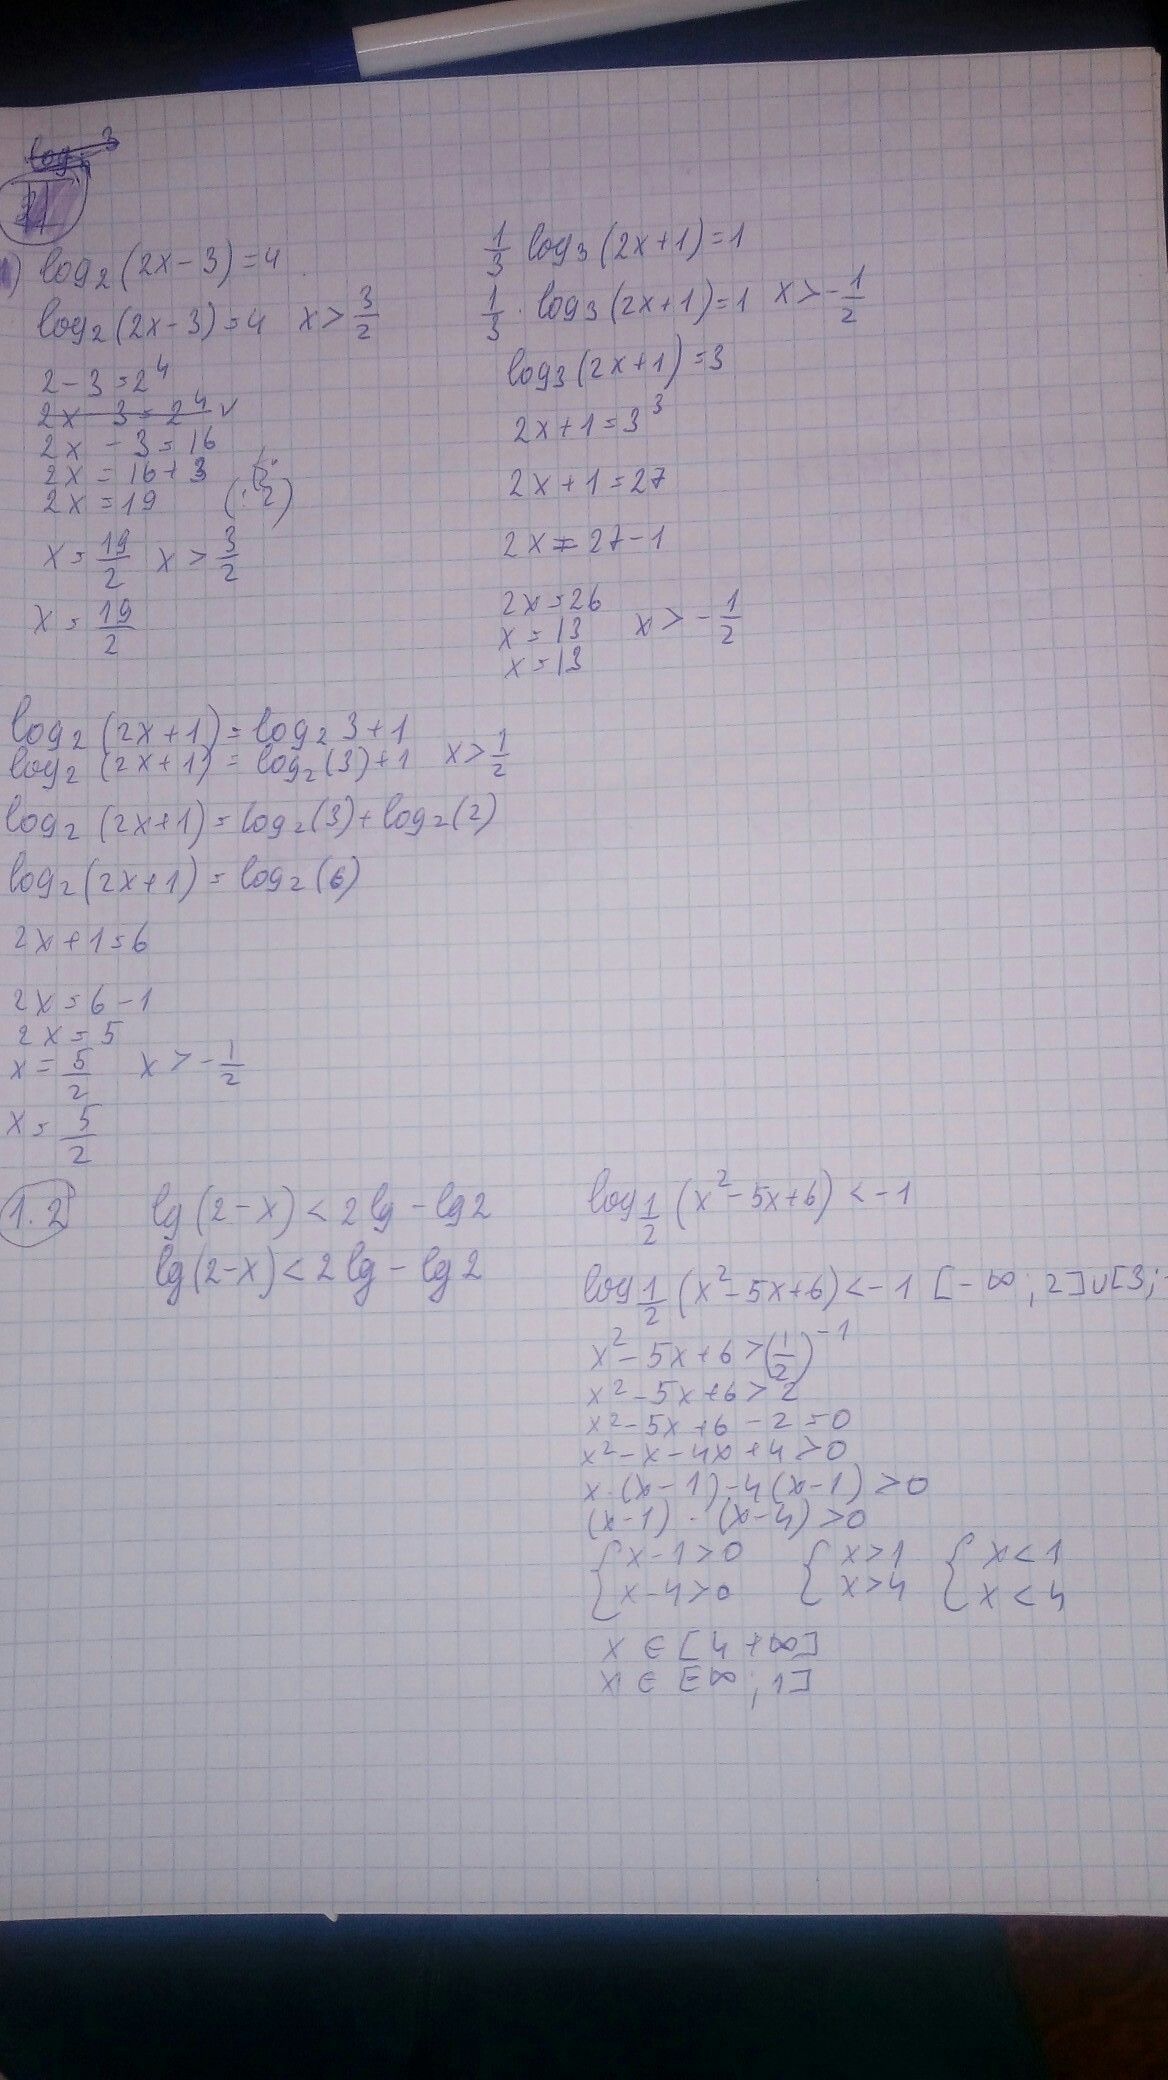 1) log₂(2x-3)=4
log₂(2x-3)=4 x>3/2
2-3=2⁴
2x-3=2⁴
2x-3=16
2x=16+3
2x=19 (:2)
x=19/2 x>3/2
x=19/2
1/3 log₃(2x+1)=1
1/3·log₃(2x+1)=1 x>-1/2
log₃(2x+1)=3
2x+1=3³
2x+1=27
2x=27-1
2x=26
x=13 x>-1/2
x=13
log₂(2x+1)=log₂3+1
log₂(2x+1)=log₂(3)+1 x>1/2
log₂(2x+1)=log₂(3)+log₂(2)
log₂(2x+1)=log₂(6)
2x+1=6
2x=6-1
2x=5
x=5/2 x>-1/2
x=5/2
1.2
lg(2-x)<2lg-lg2
lg(2-x)<2lg-lg2
log1/2(x²-5x+6)<-1
log1/2(x²-5x+6)<-1 [-∞,2]∪[3;
x²-5x+6>(1/2)⁻¹
x²-5x+6>2
x²-5x+6-2=0
x²-x-4x+4>0
x·(x-1)-4(x-1)>0
(x-1)·(x-4)>0
{x-1>0 {x>1 {x<1
{x-4>0 {x>4 {x<4
x∈[4+∞]
x∈[∞;1]